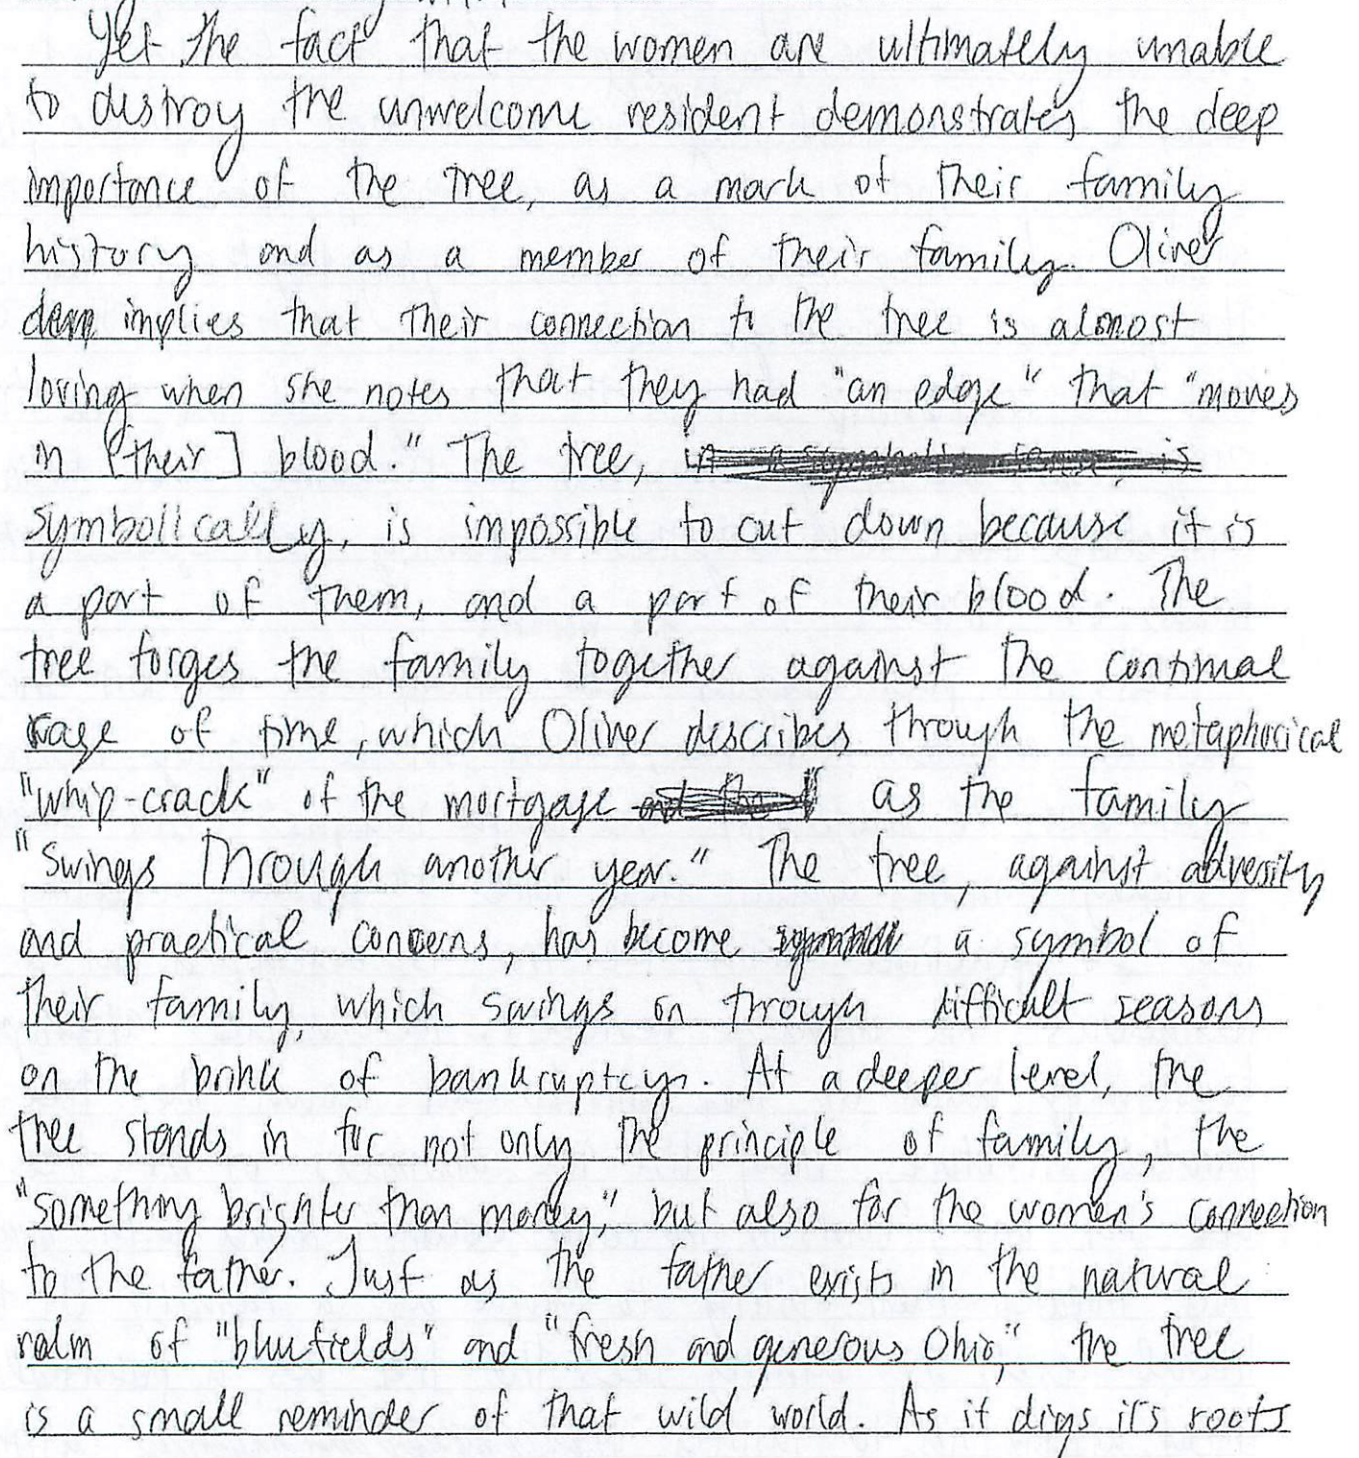 Yet the fact that the women are ultimately unable
to destroy the unwelcome resident demonstrates the deep
importance of the tree, as a mark of their family
history and as a member of their family. Oliver
implies that their connection to the tree is almost
loving when she notes that they had "an edge" that "moves
in [their] blood" The tree,
symbolically, is impossible to cut down because it is
a part of them, and a part of their blood. The
tree forges the family together against the continual
rage of time, which Oliver describes through the metaphorical
"whip-crack" of the mortgage as the family
"swings through another year." The tree, against adversity
and practical concerns, has become a symbol of
their family, which swings on through difficult seasons
on the brink of bankruptcy. At a deeper level, the
tree stands in for not only the principle of family, the
"something brighter than money," but also for the women's connection
to the father. Just as the father exists in the natural
relm of "blue fields" and "fresh and generous Ohio," the tree
is a small reminder of that wild world. As it digs it's roots